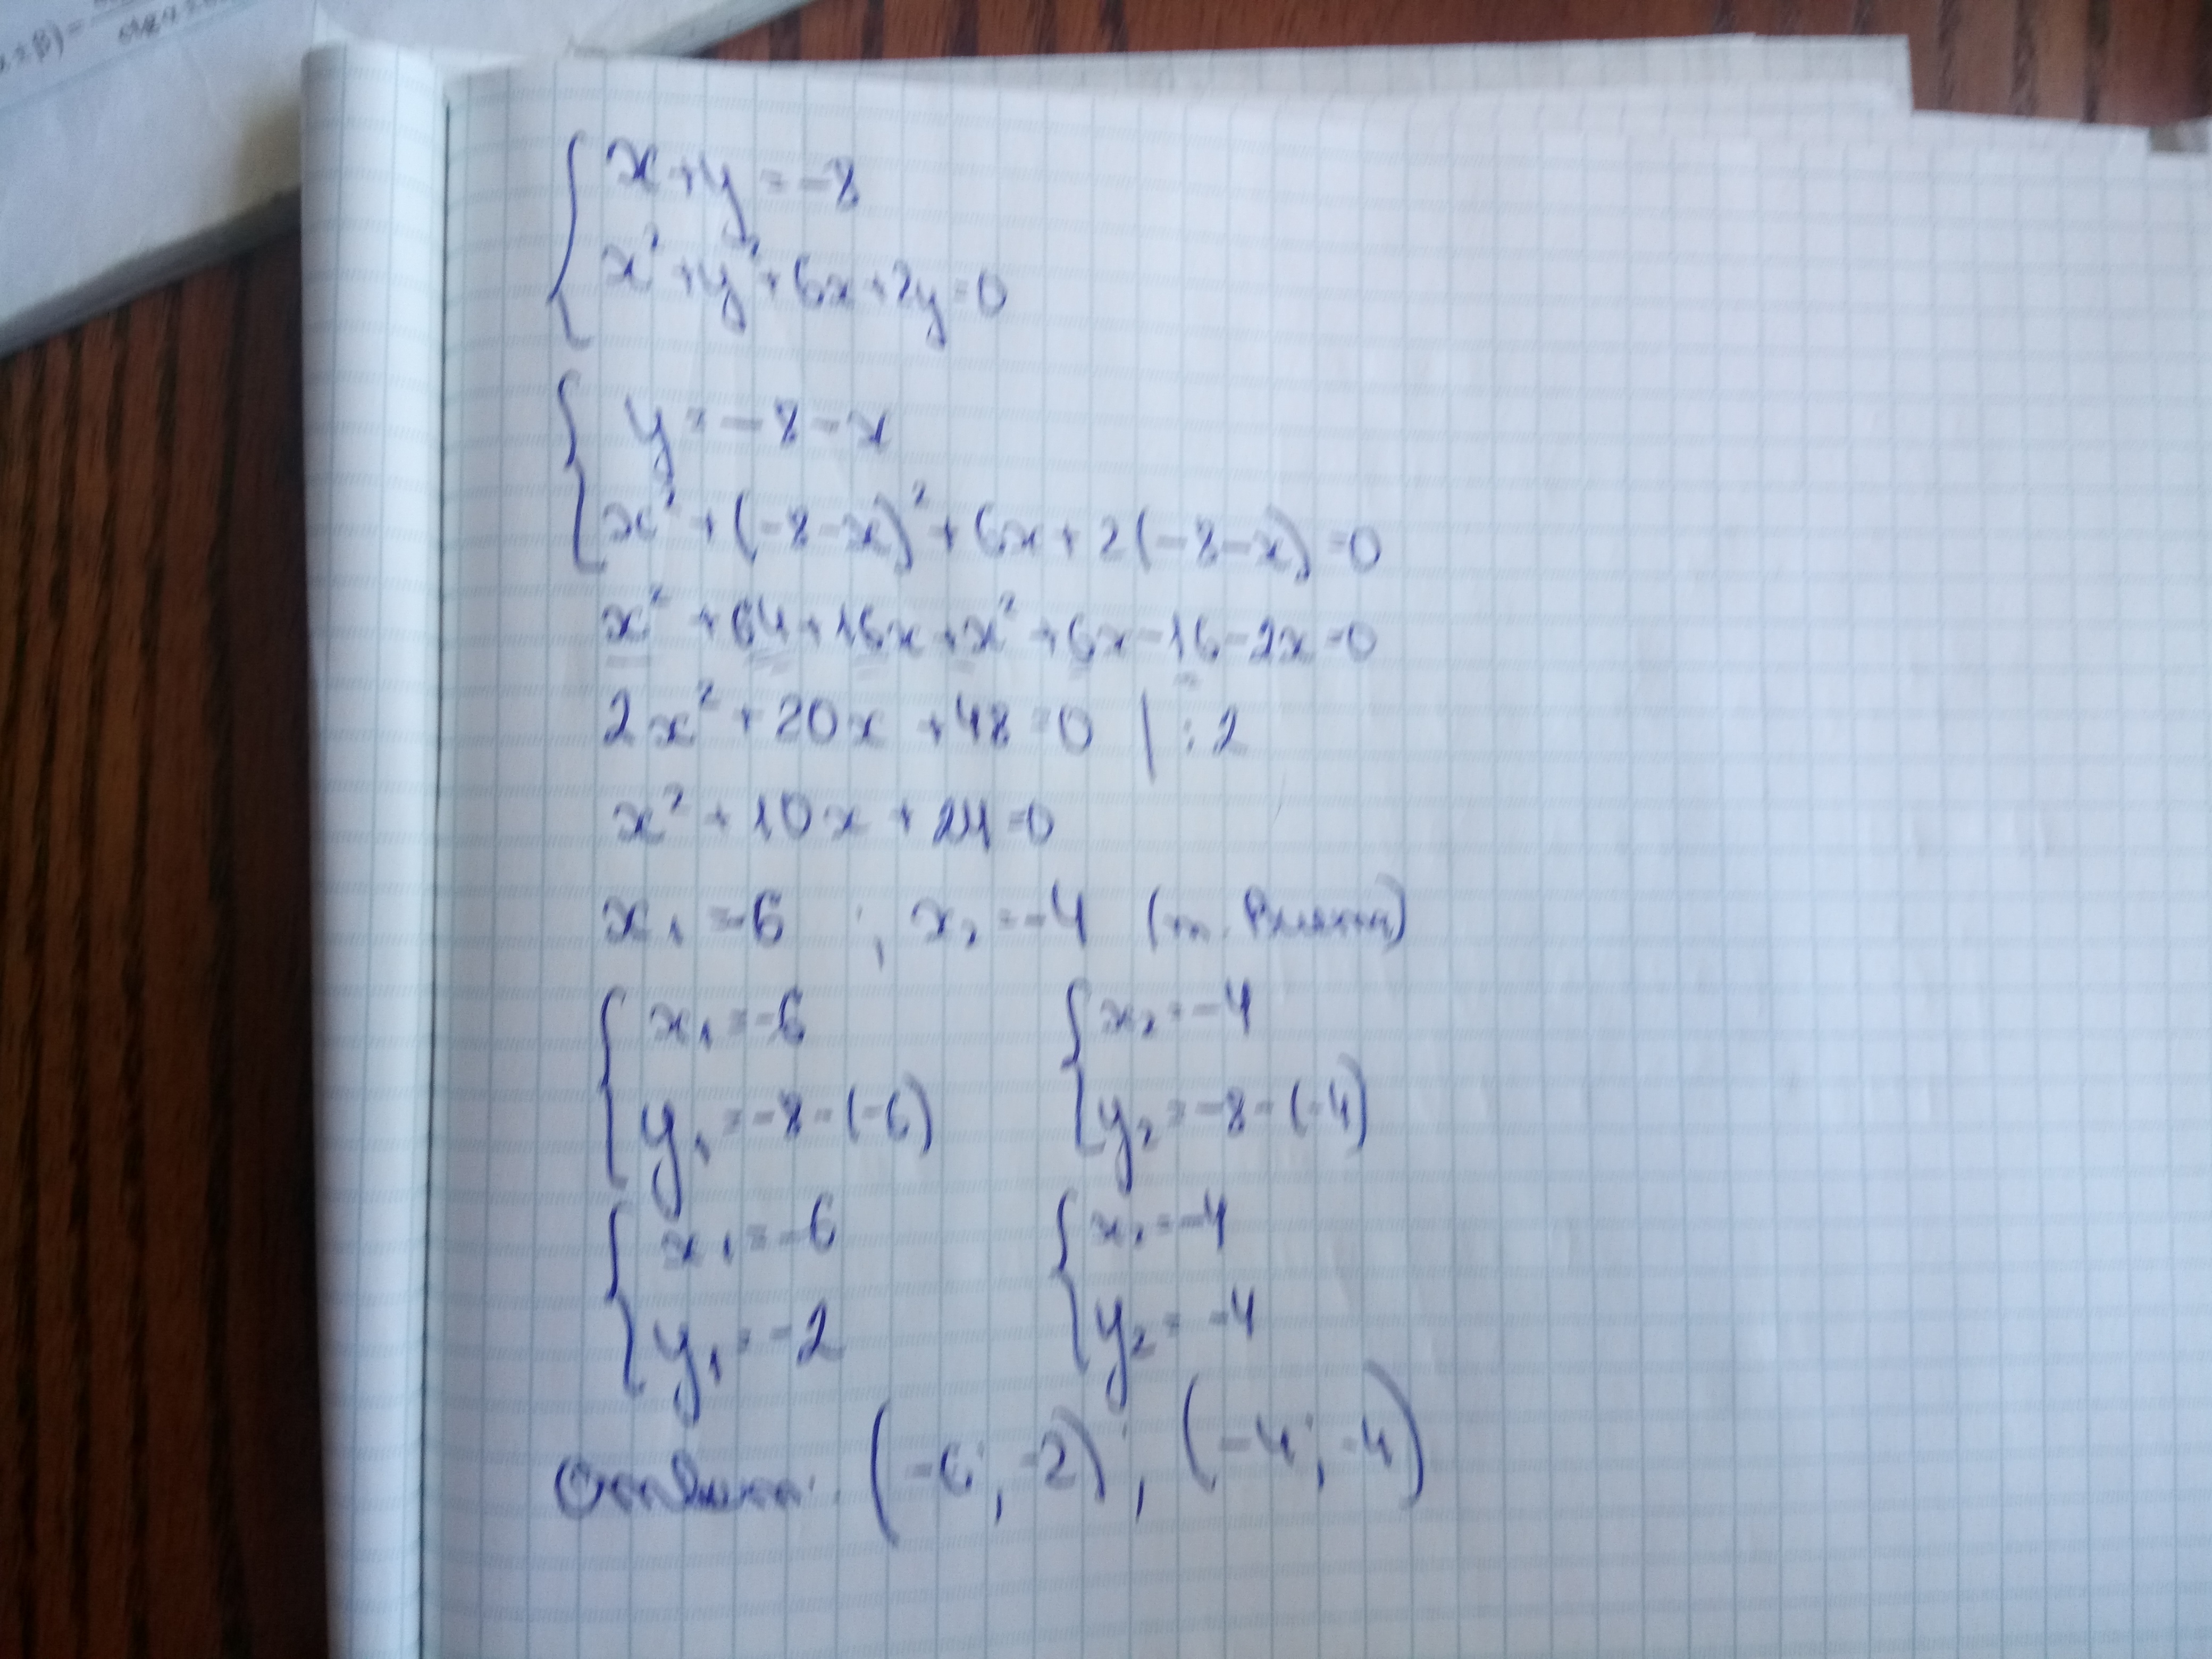 { x+y=-8
x²+y²+6x+2y=0
{ y=-8-x
x²+(-8-x)²+6x+2(-8-x)=0
x²+64+16x+x²+6x-16-2x=0
2x²+20x+48=0 | :2
x²+10x+24=0
x₁=-6 ; x₂=-4 (т. Виета)
{ x₁=-6 { x₂=-4
y₁=-8-(-6) y₂=-8-(-4)
{ x₁=-6 { x₂=-4
y₁=-2 y₂=-4
Ответ: (-6; -2); (-4; -4)